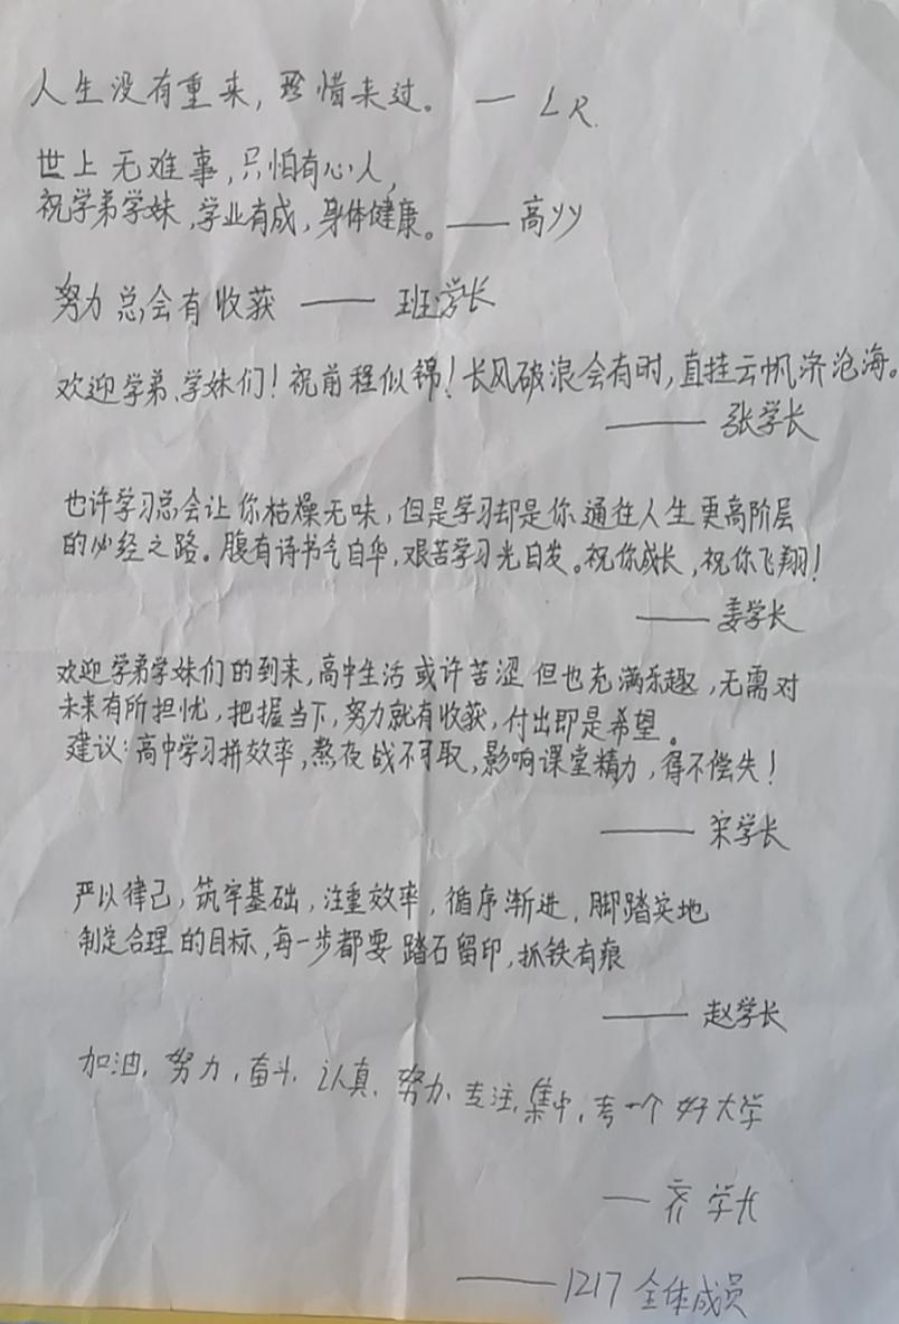 人生没有重来，珍惜来过。 — LR.
世上无难事，只怕有心人，
祝学弟学妹，学业有成，身体健康。—— 高丫丫
努力总会有收获 —— 班学长
欢迎学弟、学妹们！祝前程似锦！长风破浪会有时，直挂云帆济沧海。
—— 张学长
也许学习总会让你枯燥无味，但是学习却是你通往人生更高阶层
的必经之路。腹有诗书气自华，艰苦学习光自发。祝你成长，祝你飞翔！
—— 姜学长
欢迎学弟学妹们的到来，高中生活或许苦涩但也充满乐趣，无需对
未来有所担忧，把握当下，努力就有收获，付出即是希望。
建议：高中学习拼效率，熬夜战不可取，影响课堂精力，得不偿失！
—— 宋学长
严以律己，筑牢基础，注重效率，循序渐进，脚踏实地
制定合理的目标，每一步都要踏石留印，抓铁有痕
—— 赵学长
加油，努力，奋斗，认真，努力，专注，集中，考一个好大学
— 齐学长
—— 1217 全体成员